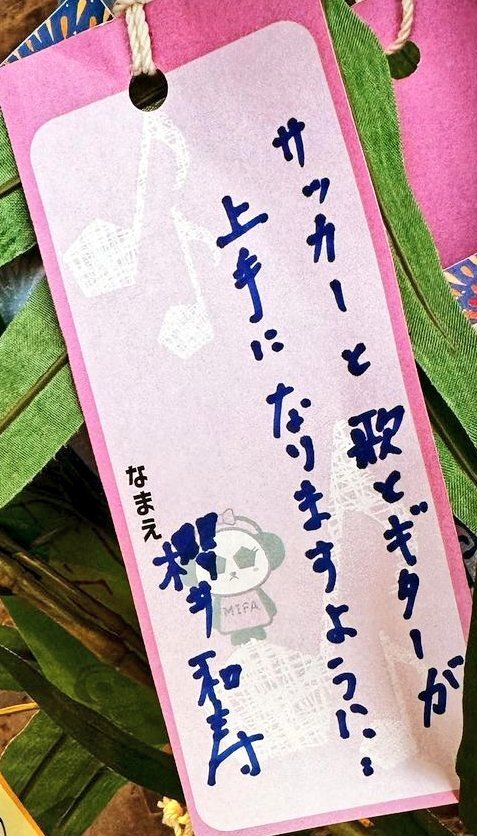 サッカーと歌とギターが
上手になりますように…
なまえ
櫻井和寿
MIFA